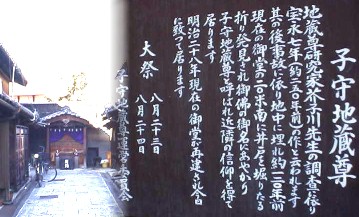 子守地蔵尊
地蔵尊研究家介川先生の調査に依り
宝永七年(約二五〇年前)の作と云われます
其の後事故に依り地中に埋れ約一二〇年前
現在の御堂の二〇米南に井戸を堀りたる
折り発見され御佛の御姿にあやかり
子守地蔵尊と呼ばれ近隣の信仰を得て
居ります
明治二十八年現在の御堂が再建され今日
に致って居ります
大祭
八月二十三日
八月二十四日
子守地蔵尊運営委員会